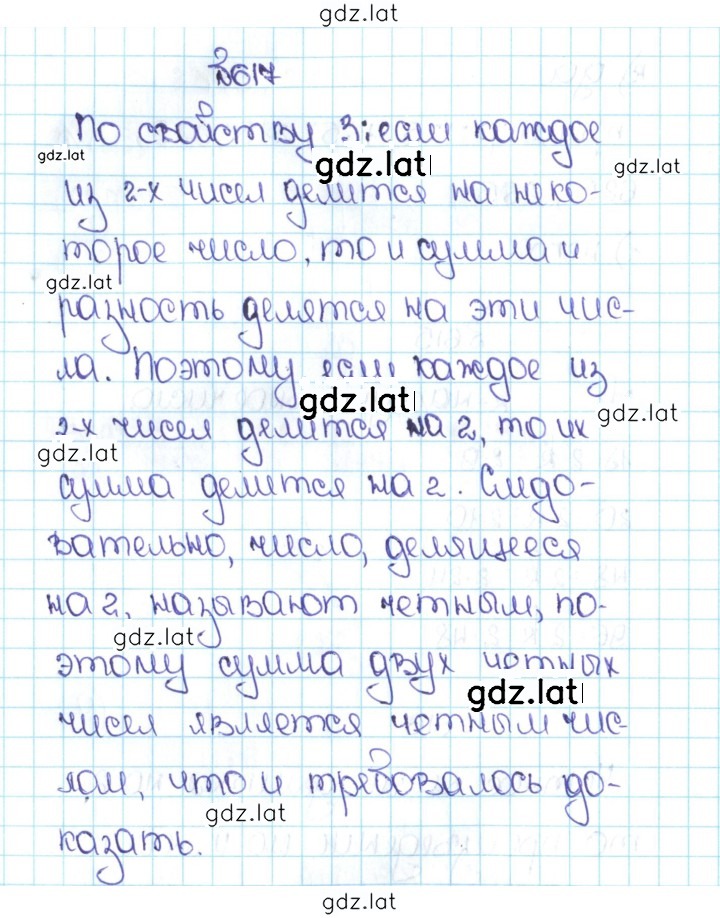 gdz.lat
№617
По свойству 3: если каждое
gdz.lat
gdz.lat
gdz.lat
из 2-х чисел делится на неко-
торое число, то и сумма и
gdz.lat
разность делятся на эти чис-
ла. Поэтому если каждое из
gdz.lat
gdz.lat
2-х чисел делится на 2, то их
gdz.lat
сумма делится на 2. Следо-
вательно, число, делящееся
на 2, называют четным, по-
gdz.lat
этому сумма двух четных
gdz.lat
чисел является четным чис-
лом, что и требовалось до-
gdz.lat
казать.
gdz.lat